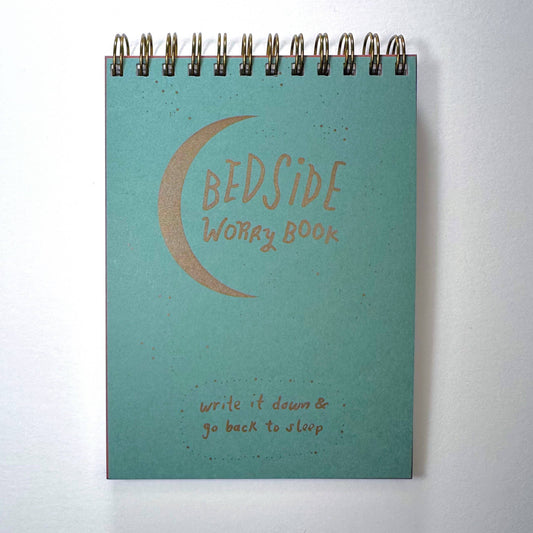 BEDSiDE
WORRy BOOK
write it down &
go back to sleep